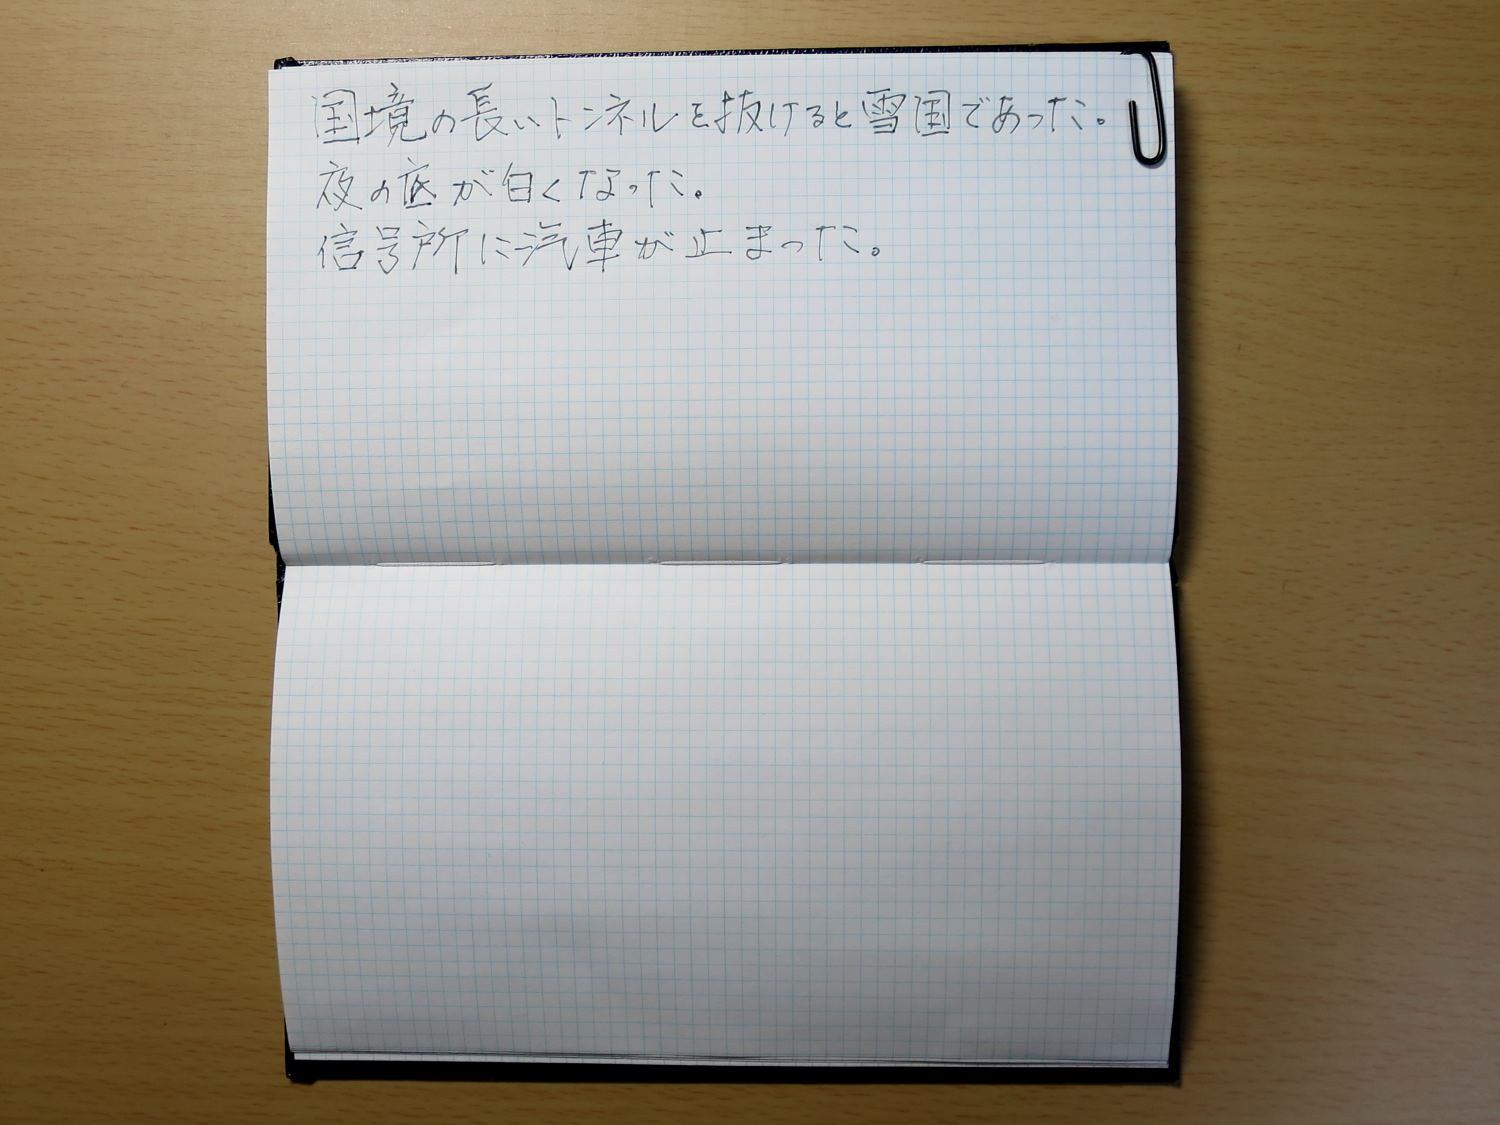 国境の長いトンネルを抜けると雪国であった。
夜の底が白くなった。
信号所に汽車が止まった。